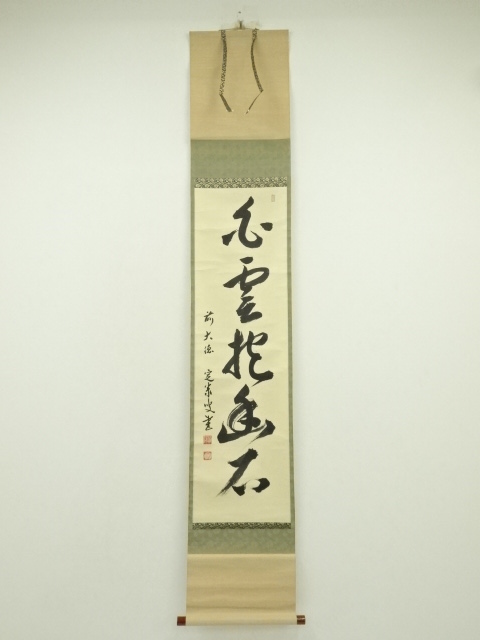 白雲抱幽石
前大徳 定泰叟書